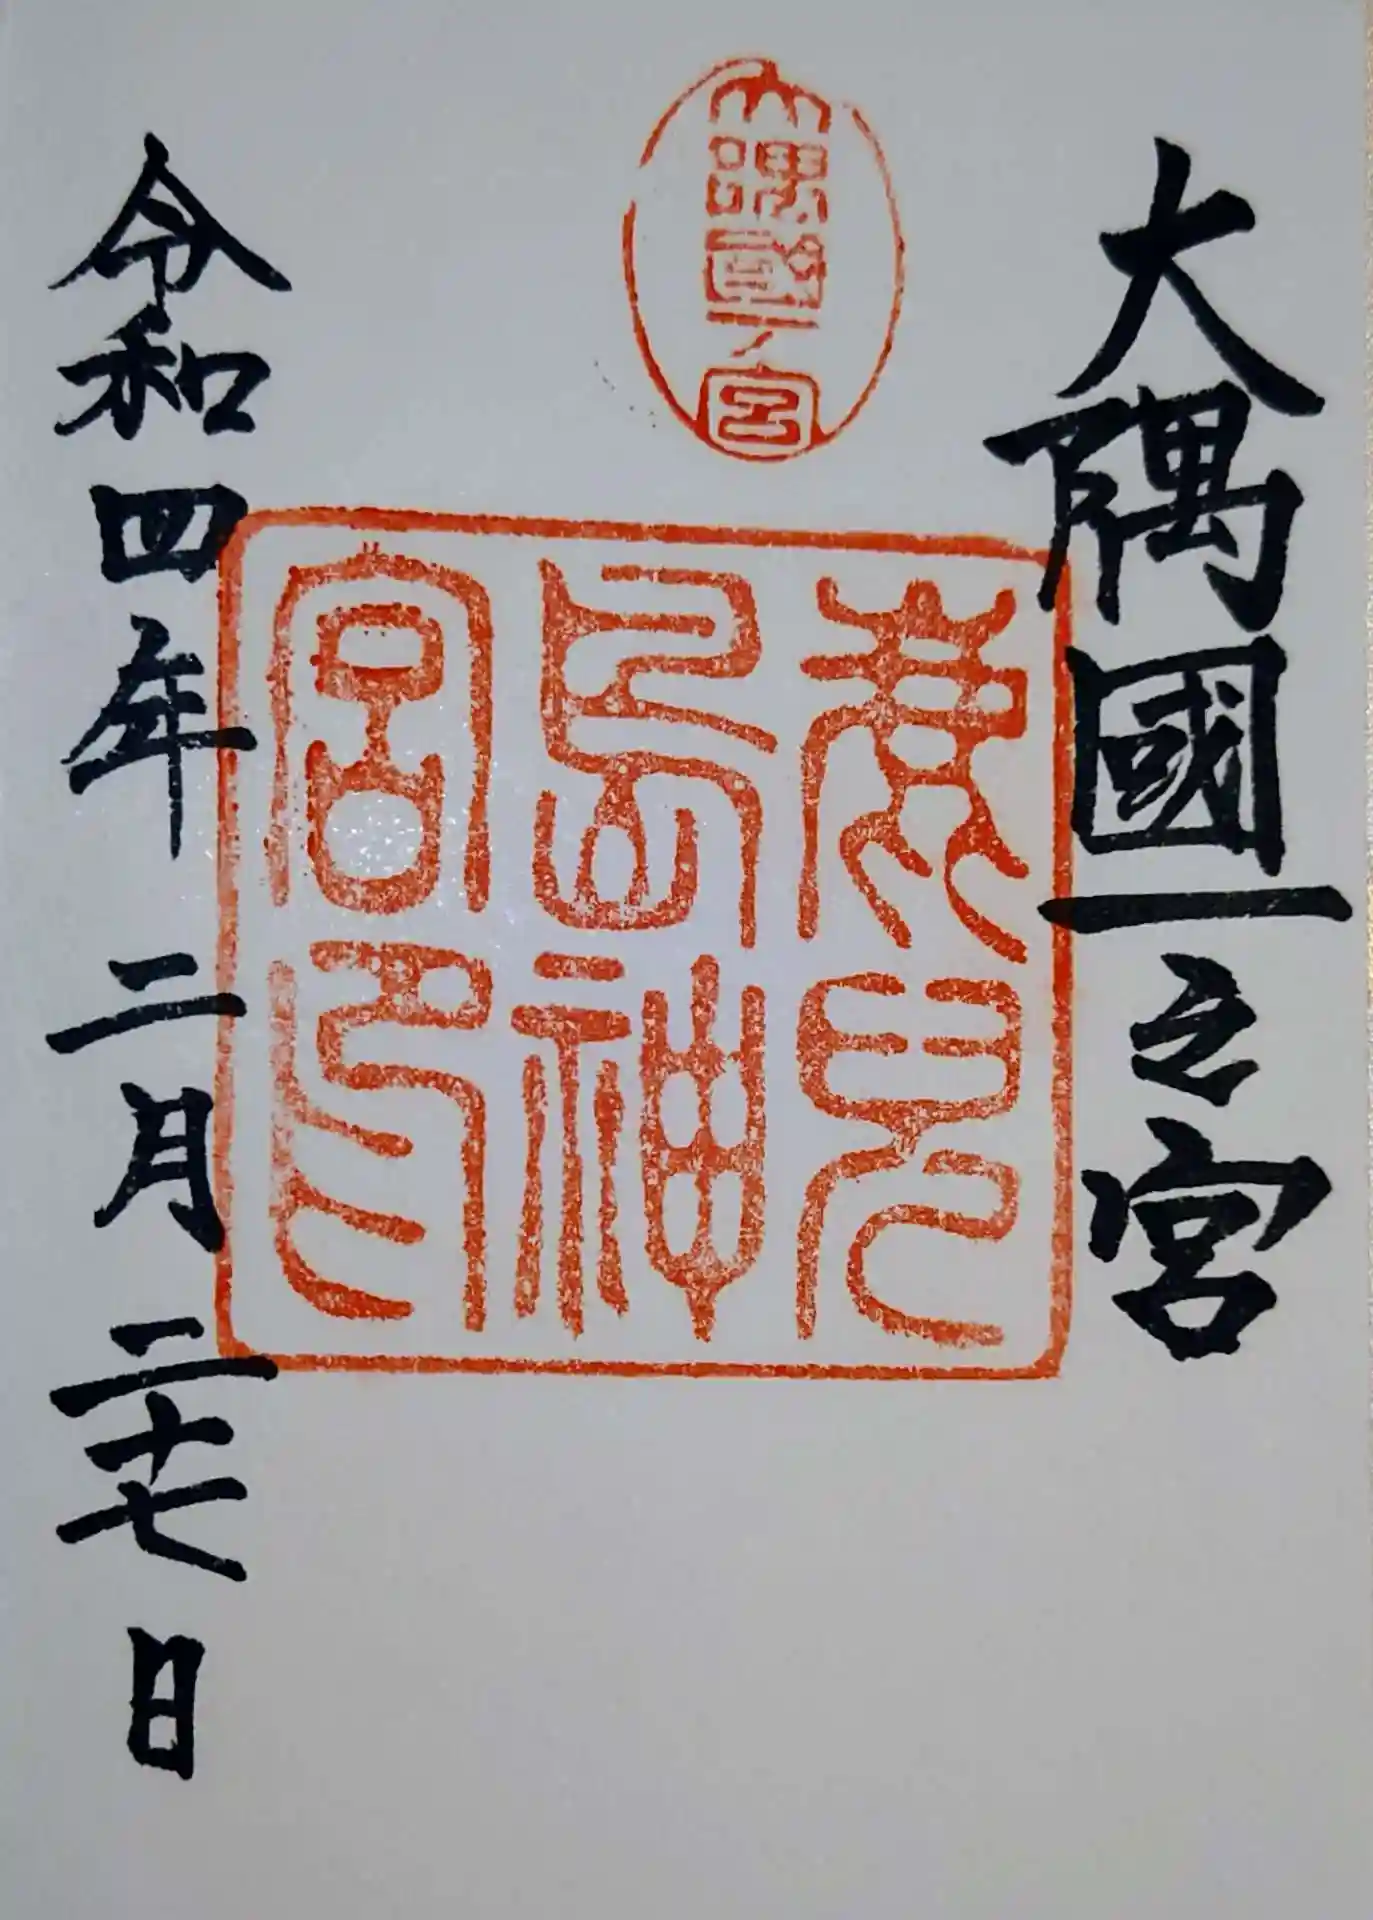 大隅國一之宮
大隅國一ノ宮
鹿兒島神宮印
令和四年二月二十七日